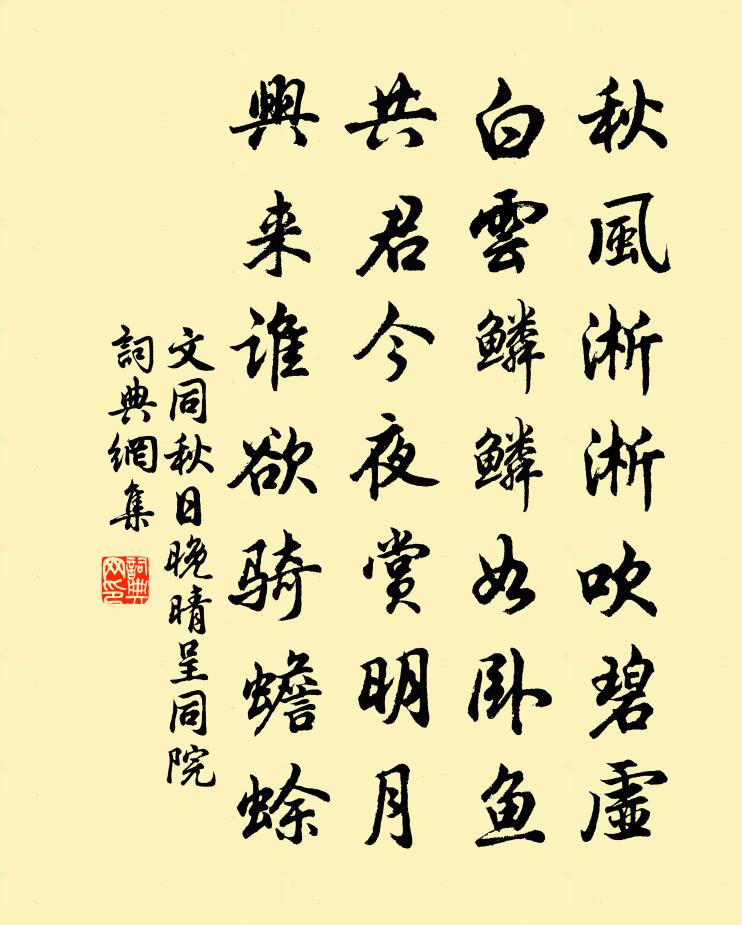 秋風淅淅吹碧虛
白雲鱗鱗如卧魚
共君今夜赏明月
興来谁欲骑蟾蜍
文同秋日晚晴呈同院
詞典網集
詞典网印